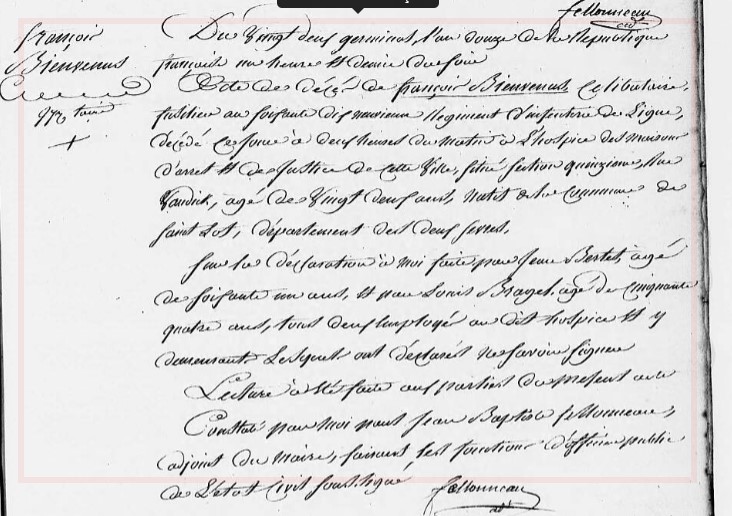 fellonneau
adt
françois
Bienvenus
Du Vingt deux germinal, l'an douze de la Republique
française une heure et demie du soir
Acte de décès de françois Bienvenus, Celibataire,
fusilier au soixante dix neuvieme Regiment d'infanterie de Ligne,
décédé ce jour à deux heures du matin à L'hospice des maisons
d'arret et de Justice de cette Ville, situé section quinzieme, Rue
agé de Vingt deux ans, natif de la Commune de
saint Lot, département des deux sevres.
sur la déclaration à moi faite, par Jean Bertet, agé
de soixante un ans, et par Louis Braget, agé de cinquante
quatre ans, tous deux Employés au dit hospice et y
demeurant Lesquels ont déclarés ne savoir signer
Lecture à eté faite aux parties du present acte
Constaté par moi Jean Baptiste fellonneau,
adjoint du maire, faisant les fonctions d'officier public
de L'etat Civil soussigné
fellonneau
adt